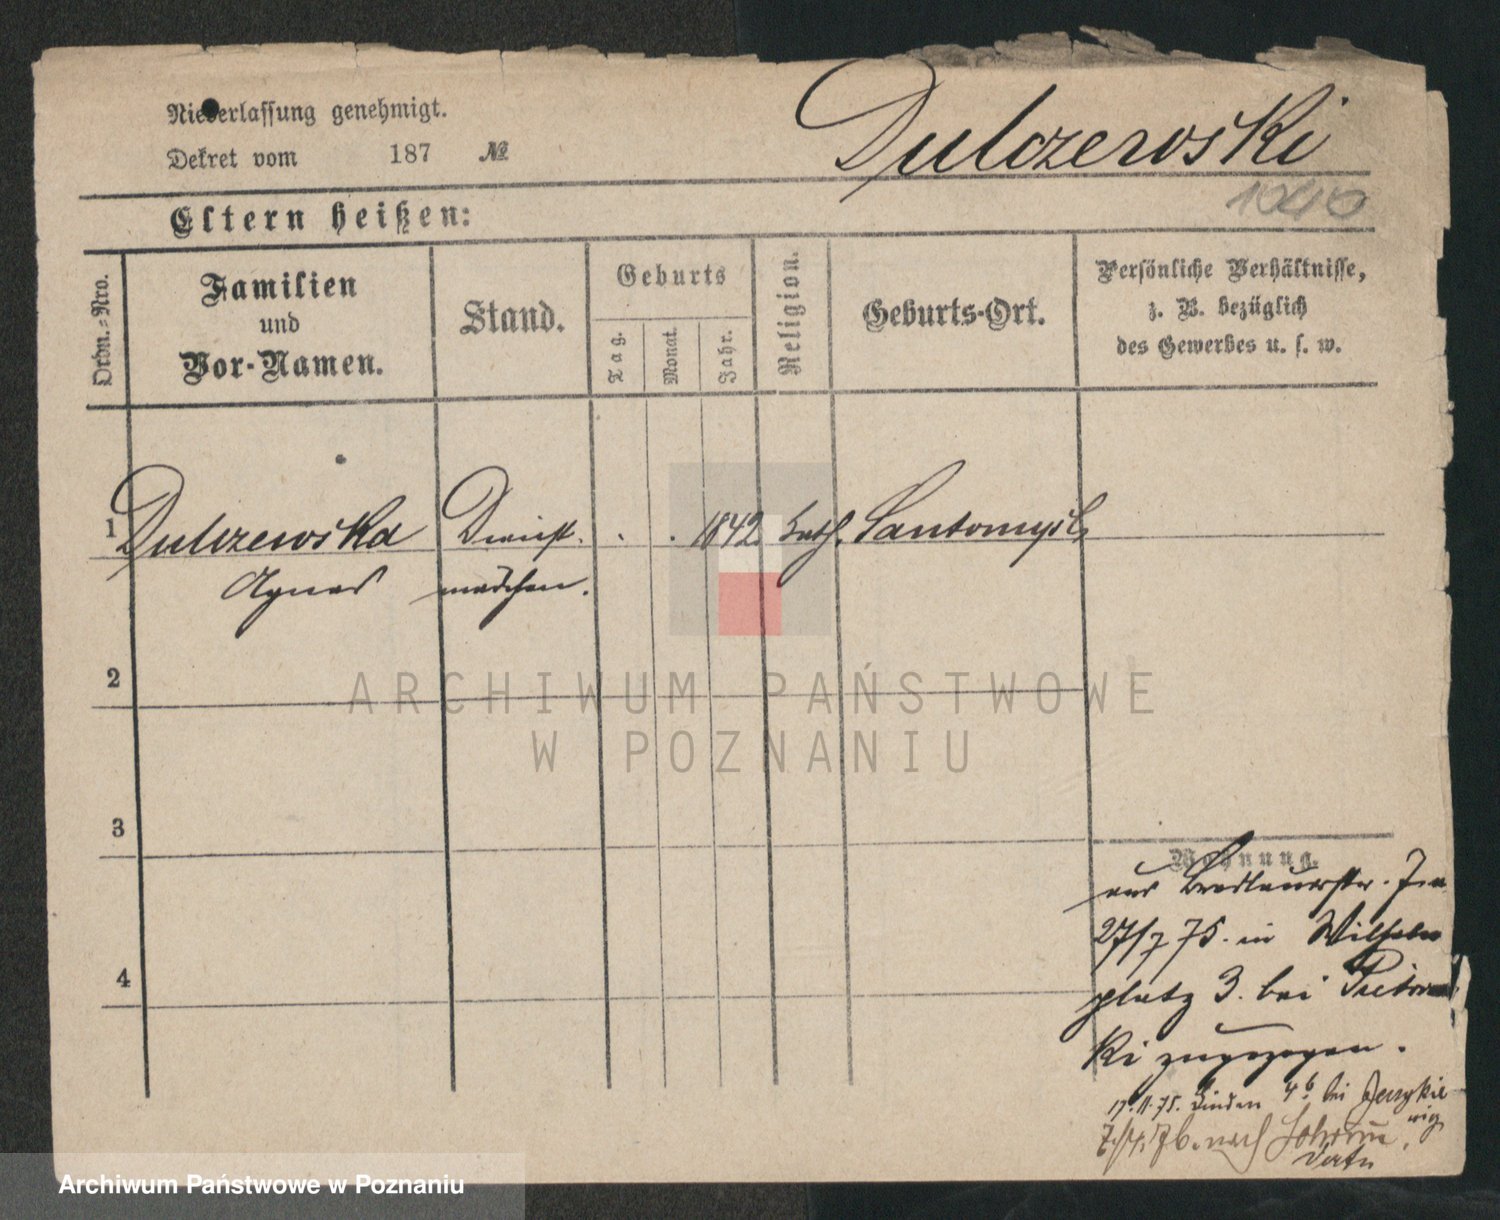 Niederlassung genehmigt.
Dekret vom 187 №
Dulczewski
1040
Eltern heißen:
Ordn.-Nro.
Familien
und
Vor-Namen.
Stand.
Geburts
Tag.
Monat.
Jahr.
Religion.
Geburts-Ort.
Persönliche Verhältnisse,
z. B. bezüglich
des Gewerbes u. s. w.
1 Dulczewska Dienst- . . 1842 kath. Santomysl
Agnes mädchen.
2
3
4
Wohnung.
aus Breslauerstr.
27/7 75. in Wilhelm
platz 3. bei
ki zugezogen.
17.11.75. Linden 4b bei
7/4. 76. nach
ARCHIWUM PAŃSTWOWE
W POZNANIU
Archiwum Państwowe w Poznaniu